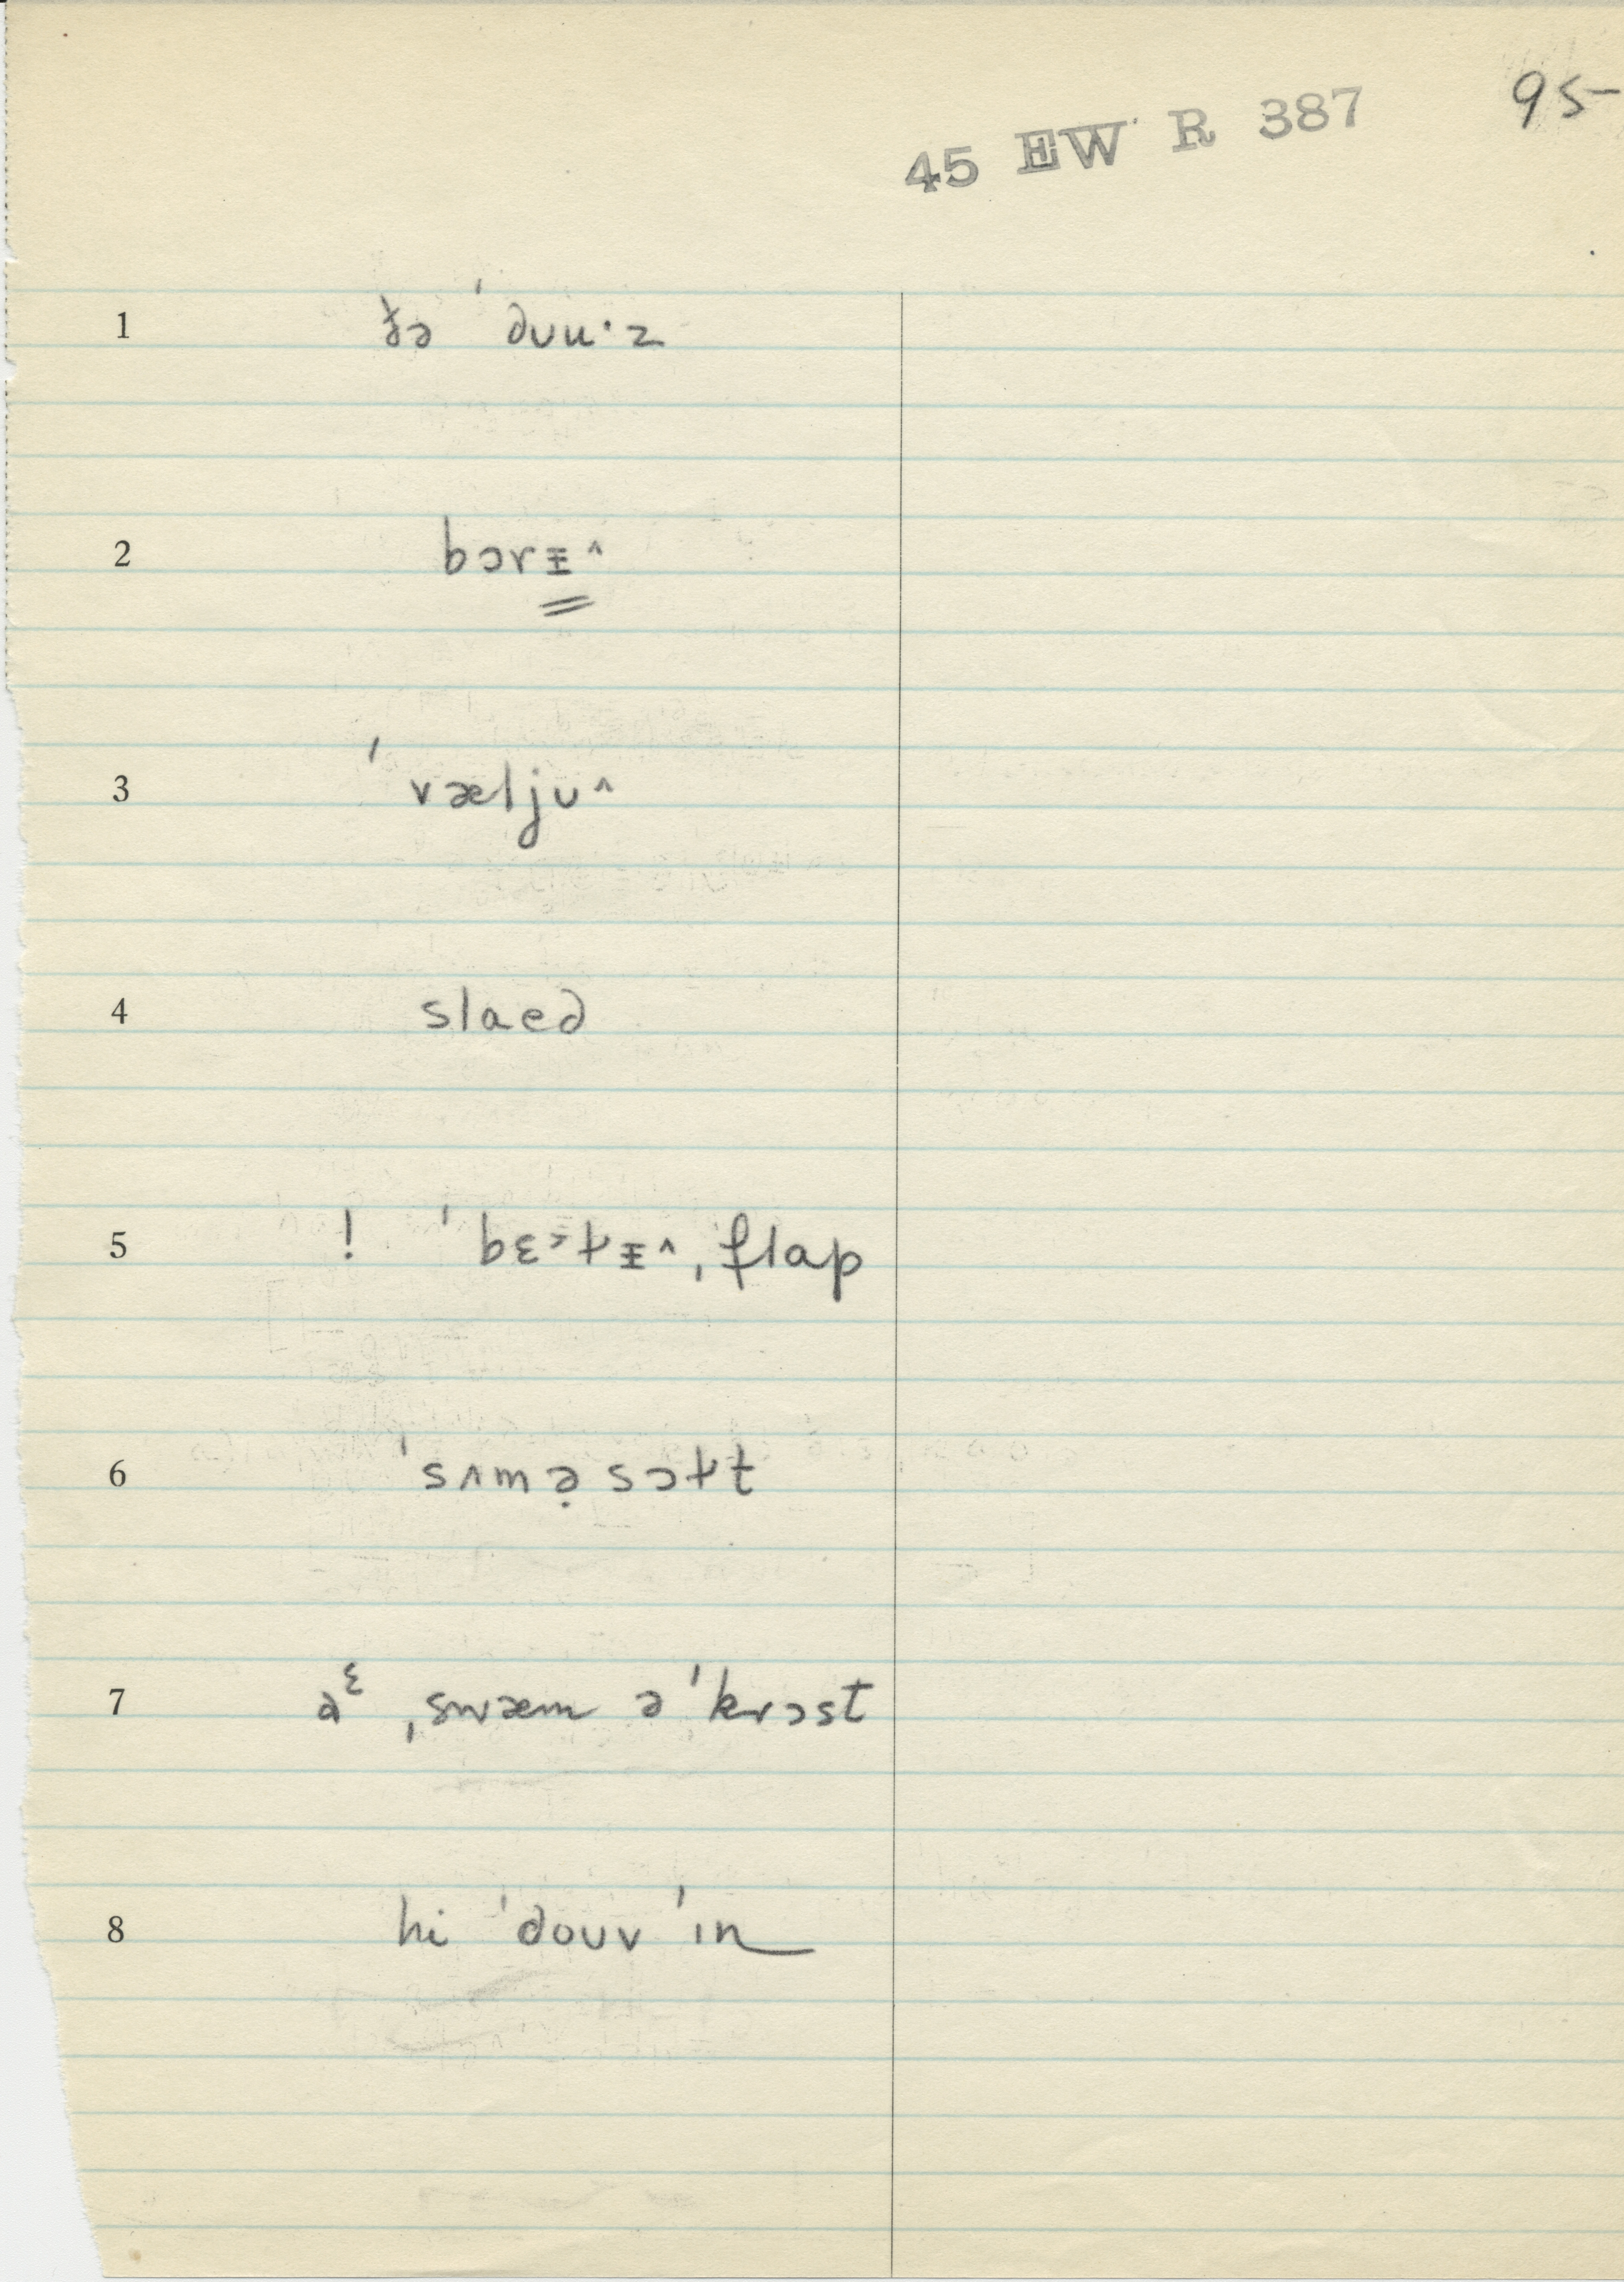 95-
45 EW R 387
1 t̬ə ˈduu·z
2 bɔrɪ̵^
3 ˈvæljʊ^
4 slaed
5 ! ˈbɛ˃t̬ɪ̵^, flap
6 ˈsʌmə̣ sɔɫt
7 aᵋ ˌswæm əˈkrɔst
8 hi ˈdouv ˈɪn